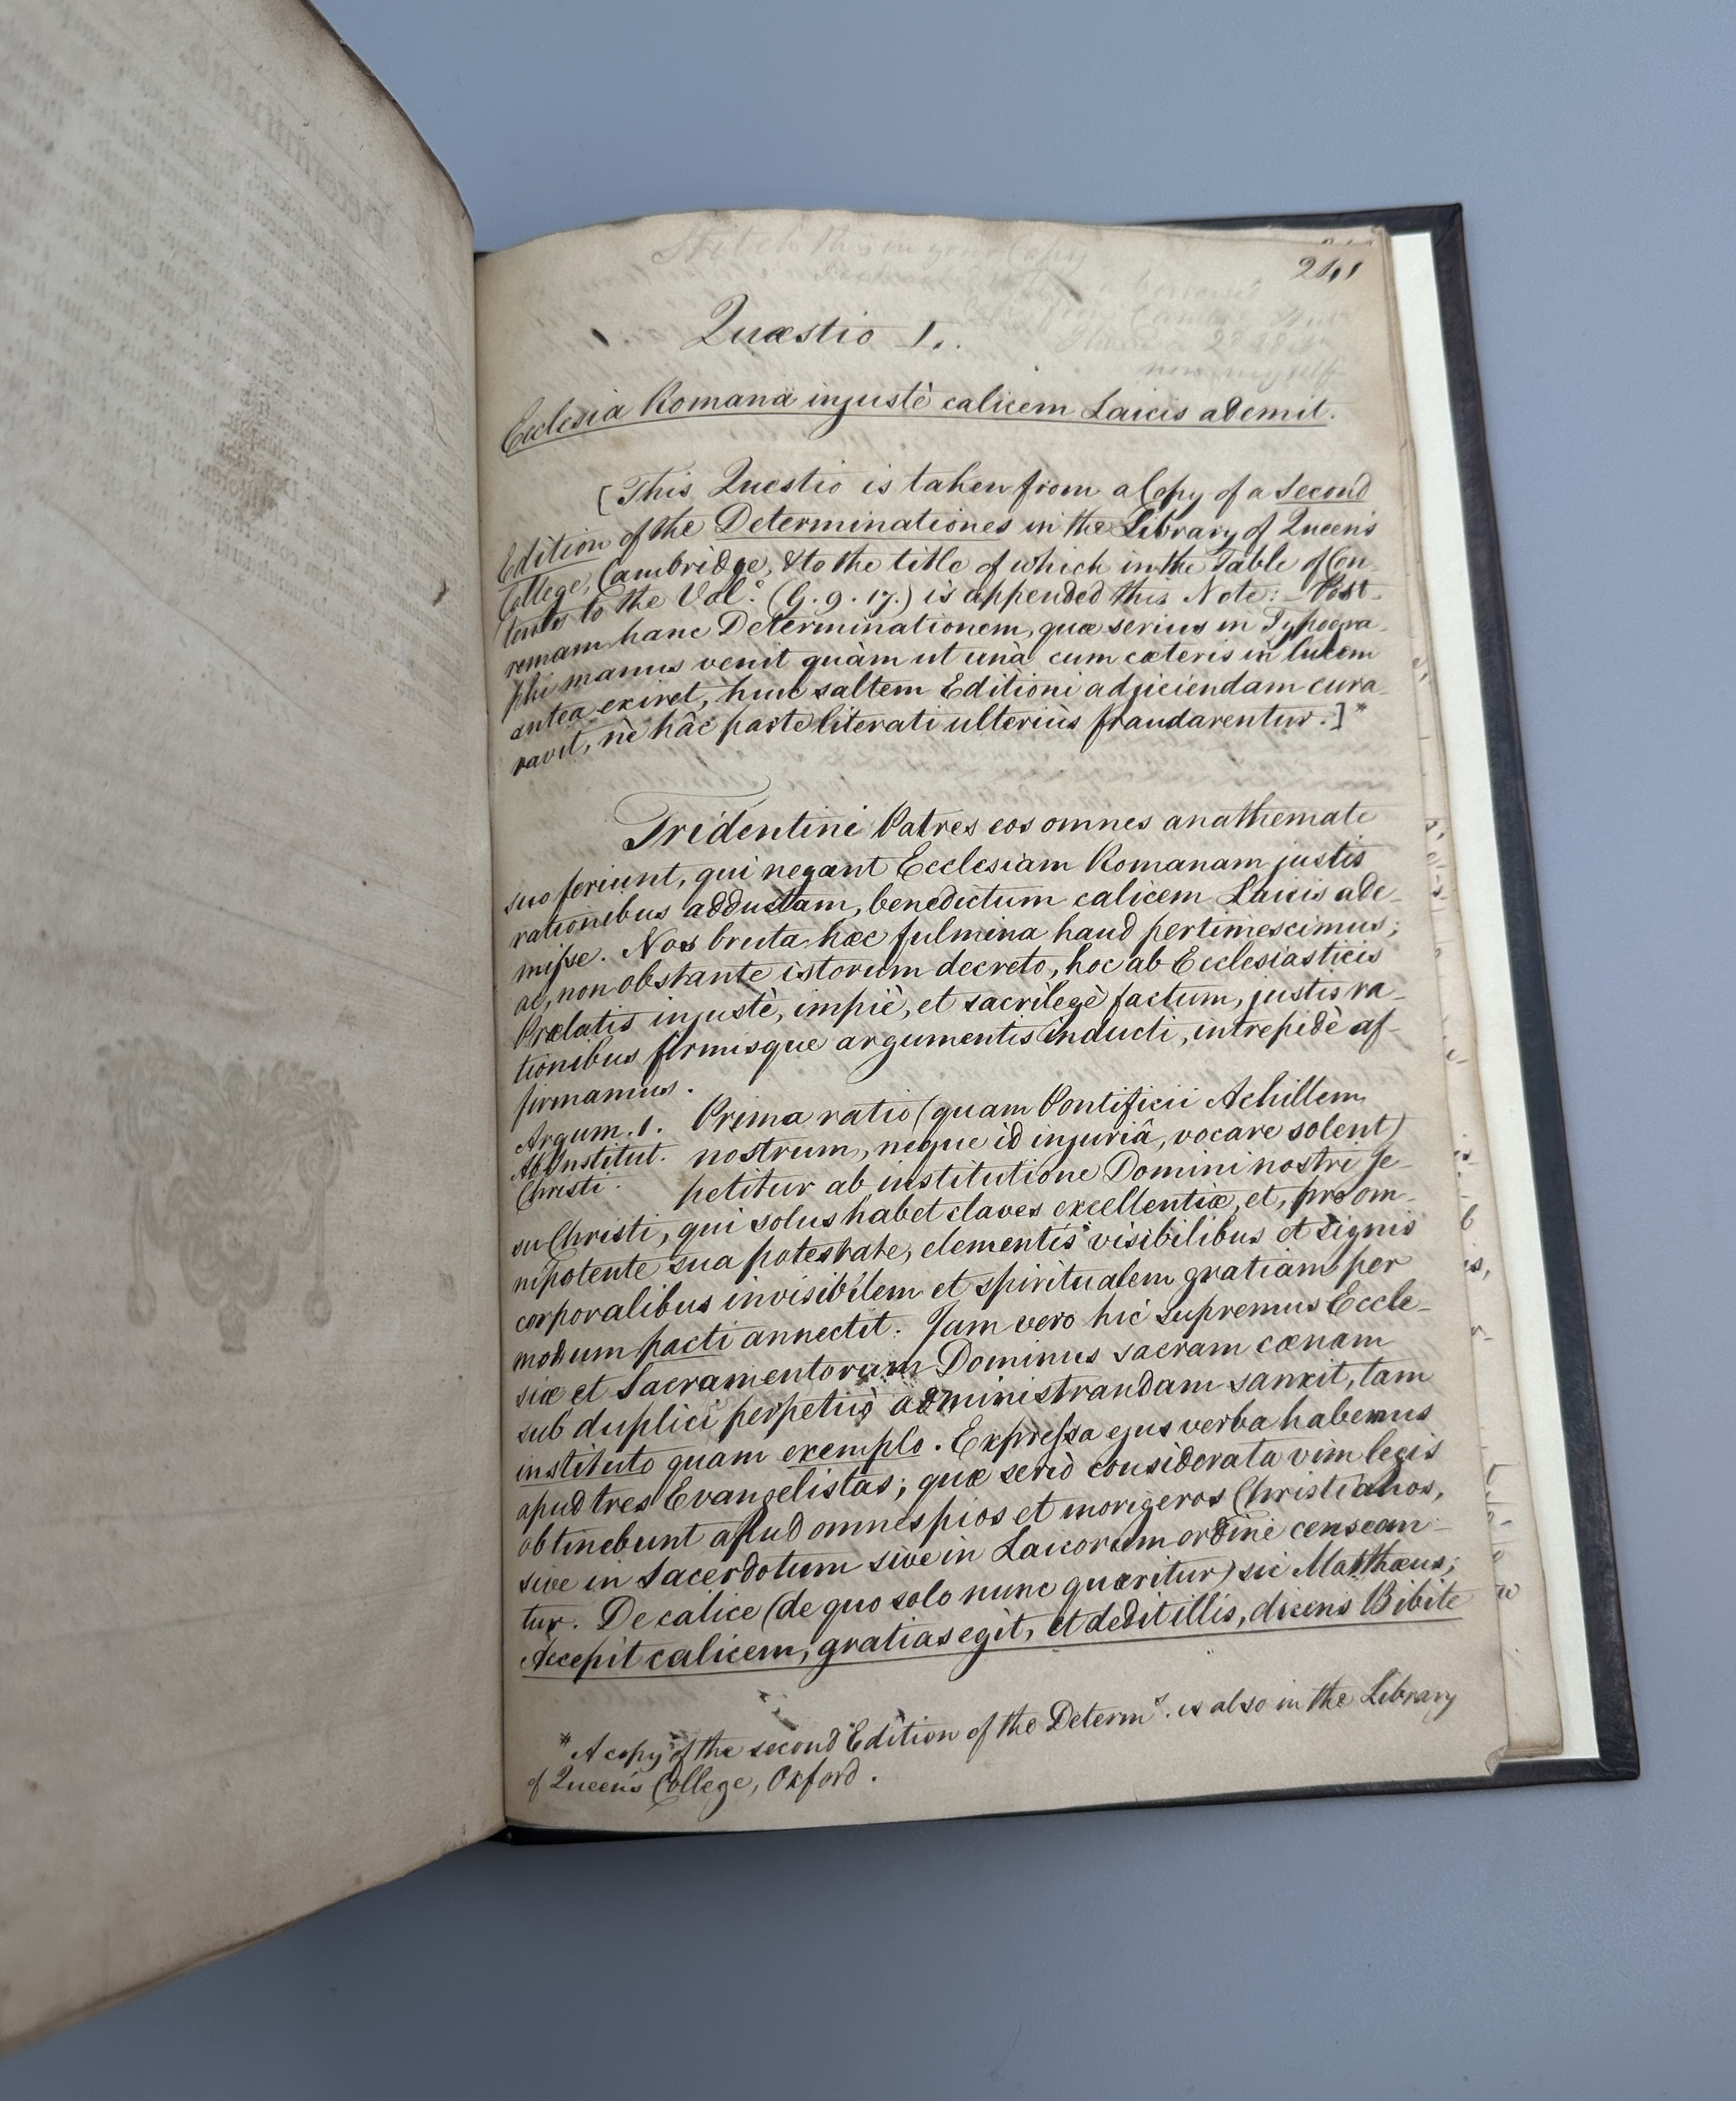 Stitch this in your Copy
241
Quæstio 1.
Ecclesia Romana injustè calicem Laicis ademit.
[This Quæstio is taken from a Copy of a Second
Edition of the Determinationes in the Library of Queen's
College, Cambridge, & to the title of which in the Table of Con-
tents to the Vol. (G. 9. 17.) is appended this Note: Post-
remam hanc Determinationem, quæ serius in Typogra-
phi manus venit quàm ut unà cum cæteris in lucem
antea exiret, huic saltem Editioni adjiciendam cura-
ravit, nè hâc parte literati ulteriùs fraudarentur.]*
Tridentini Patres eos omnes anathemate
suo feriunt, qui negant Ecclesiam Romanam justis
rationibus adductam, benedictum calicem Laicis ade-
misse. Nos bruta hæc fulmina haud pertimescimus;
ac, non obstante istorum decreto, hoc ab Ecclesiasticis
Prælatis injustè, impiè, et sacrilegè factum, justis ra-
tionibus firmisque argumentis inducti, intrepidè af-
firmamus.
Argum. 1. Prima ratio (quam Pontificii Achillem
Ab Institut. nostrum, neque id injuriâ, vocare solent)
Christi. petitur ab institutione Domini nostri Je-
su Christi, qui solus habet claves excellentiæ, et, pro om-
nipotente sua potestate, elementis visibilibus et signis
corporalibus invisibilem et spiritualem gratiam per
modum pacti annectit. Jam vero hic supremus Eccle-
siæ et Sacramentorum Dominus sacram cœnam
sub duplici perpetuò administrandam sanxit, tam
instituto quam exemplo. Expressa ejus verba habemus
apud tres Evangelistas; quæ seriò considerata vim legis
obtinebunt apud omnes pios et morigeros Christianos,
sive in Sacerdotum sive in Laicorum ordine censean-
tur. De calice (de quo solo nunc quæritur) sic Matthæus;
Accepit calicem, gratias egit, et dedit illis, dicens Bibite
* A copy of the second Edition of the Determs. is also in the Library
of Queen's College, Oxford.